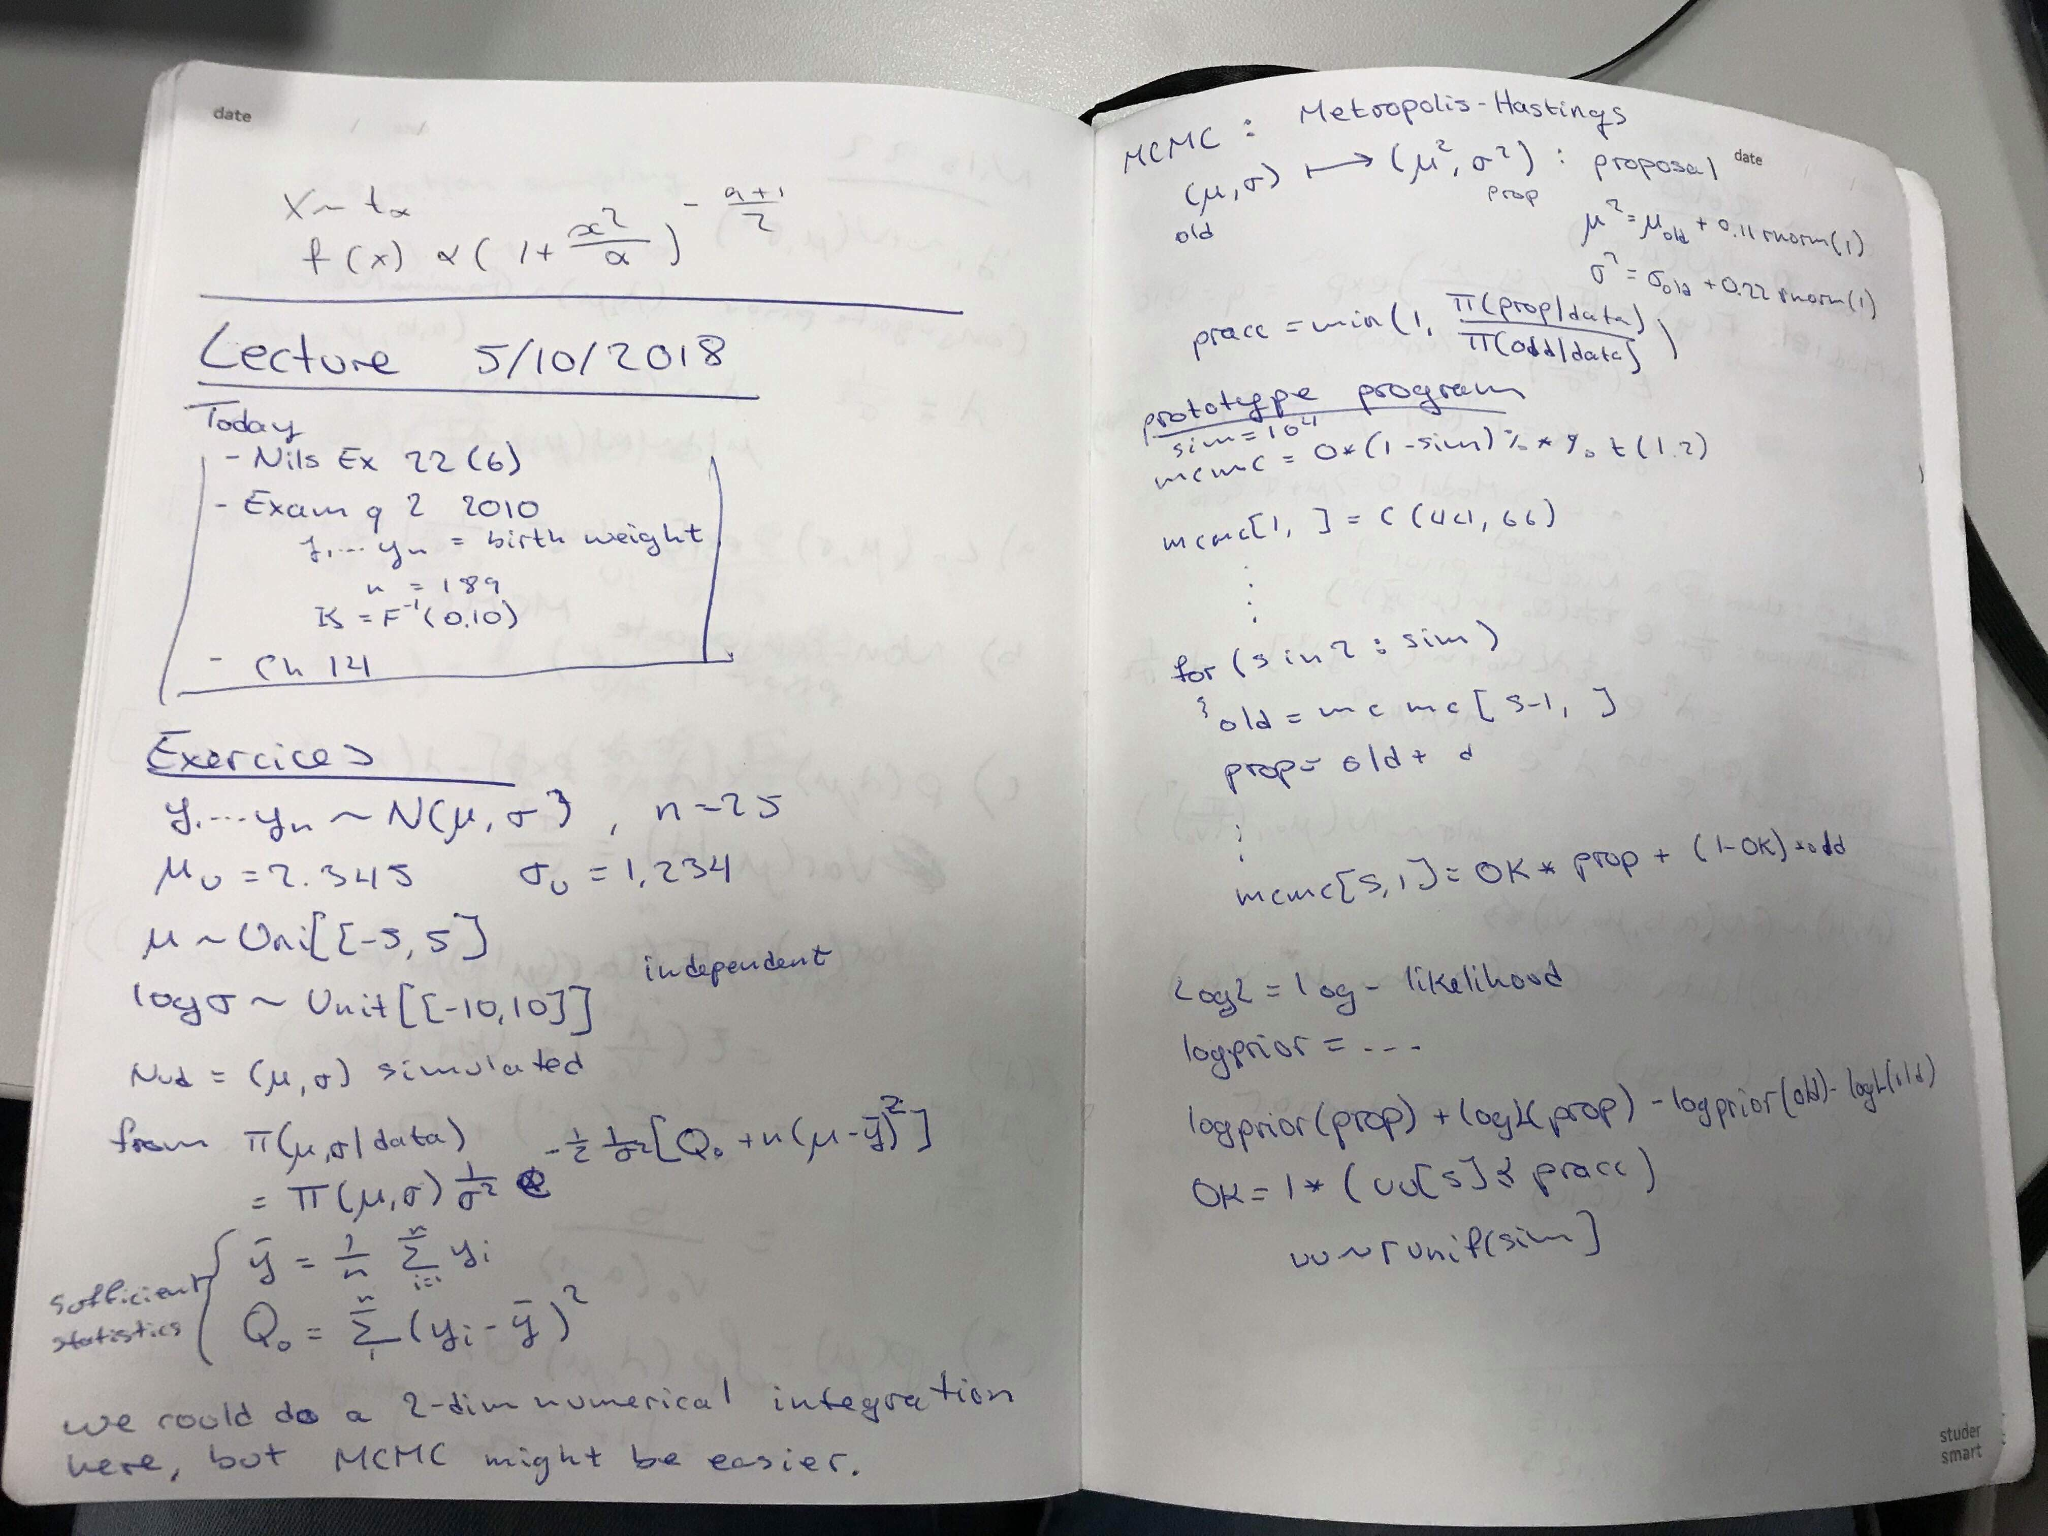 date
X ~ t_α
f(x) ∝ (1 + x²/α)^(-(α+1)/2)
Lecture 5/10/2018
Today
- Nils Ex 22 (6)
- Exam q 2 2010
y₁...yₙ = birth weight
n = 189
K = F⁻¹(0.10)
- Ch 14
Exercices
y₁...yₙ ~ N(μ, σ²), n=25
μ₀ = 2.345 σ₀ = 1,234
μ ~ Uni[[-5, 5]
independent
logσ ~ Unit[[-10,10]]
(μ, σ) simulated
from π(μ,σ|data)
= π(μ,σ) 1/σ² e^(-1/2 1/σ² [Q₀ + n(μ-ȳ)²]
sufficient statistics
ȳ = 1/n Σⁿᵢ₌₁ yᵢ
Q₀ = Σⁿ₁ (yᵢ - ȳ)²
we could do a 2-dim numerical integration
here, but MCMC might be easier.
date
MCMC : Metropolis-Hastings
(μ,σ) ↦ (μ², σ²) : proposal
old prop
μ² = μ_old + 0.11 rnorm(1)
σ² = σ_old + 0.22 rnorm(1)
pracc = min(1, π(prop|data)/π(old|data))
prototype program
sim = 10^4
mcmc = 0*(1-sim) %*% t(1.2)
mcmc[1, ] = c(44, 66)
for (s in 2 : sim)
{ old = mcmc[s-1, ]
prop = old + d
mcmc[s, ] = OK * prop + (1-OK) * old
logL = log-likelihood
logprior = ---
logprior(prop) + logL(prop) - logprior(old) - logL(old)
OK = 1 * (uu[s] ≤ pracc)
uu ~ runif(sim]
studer
smart